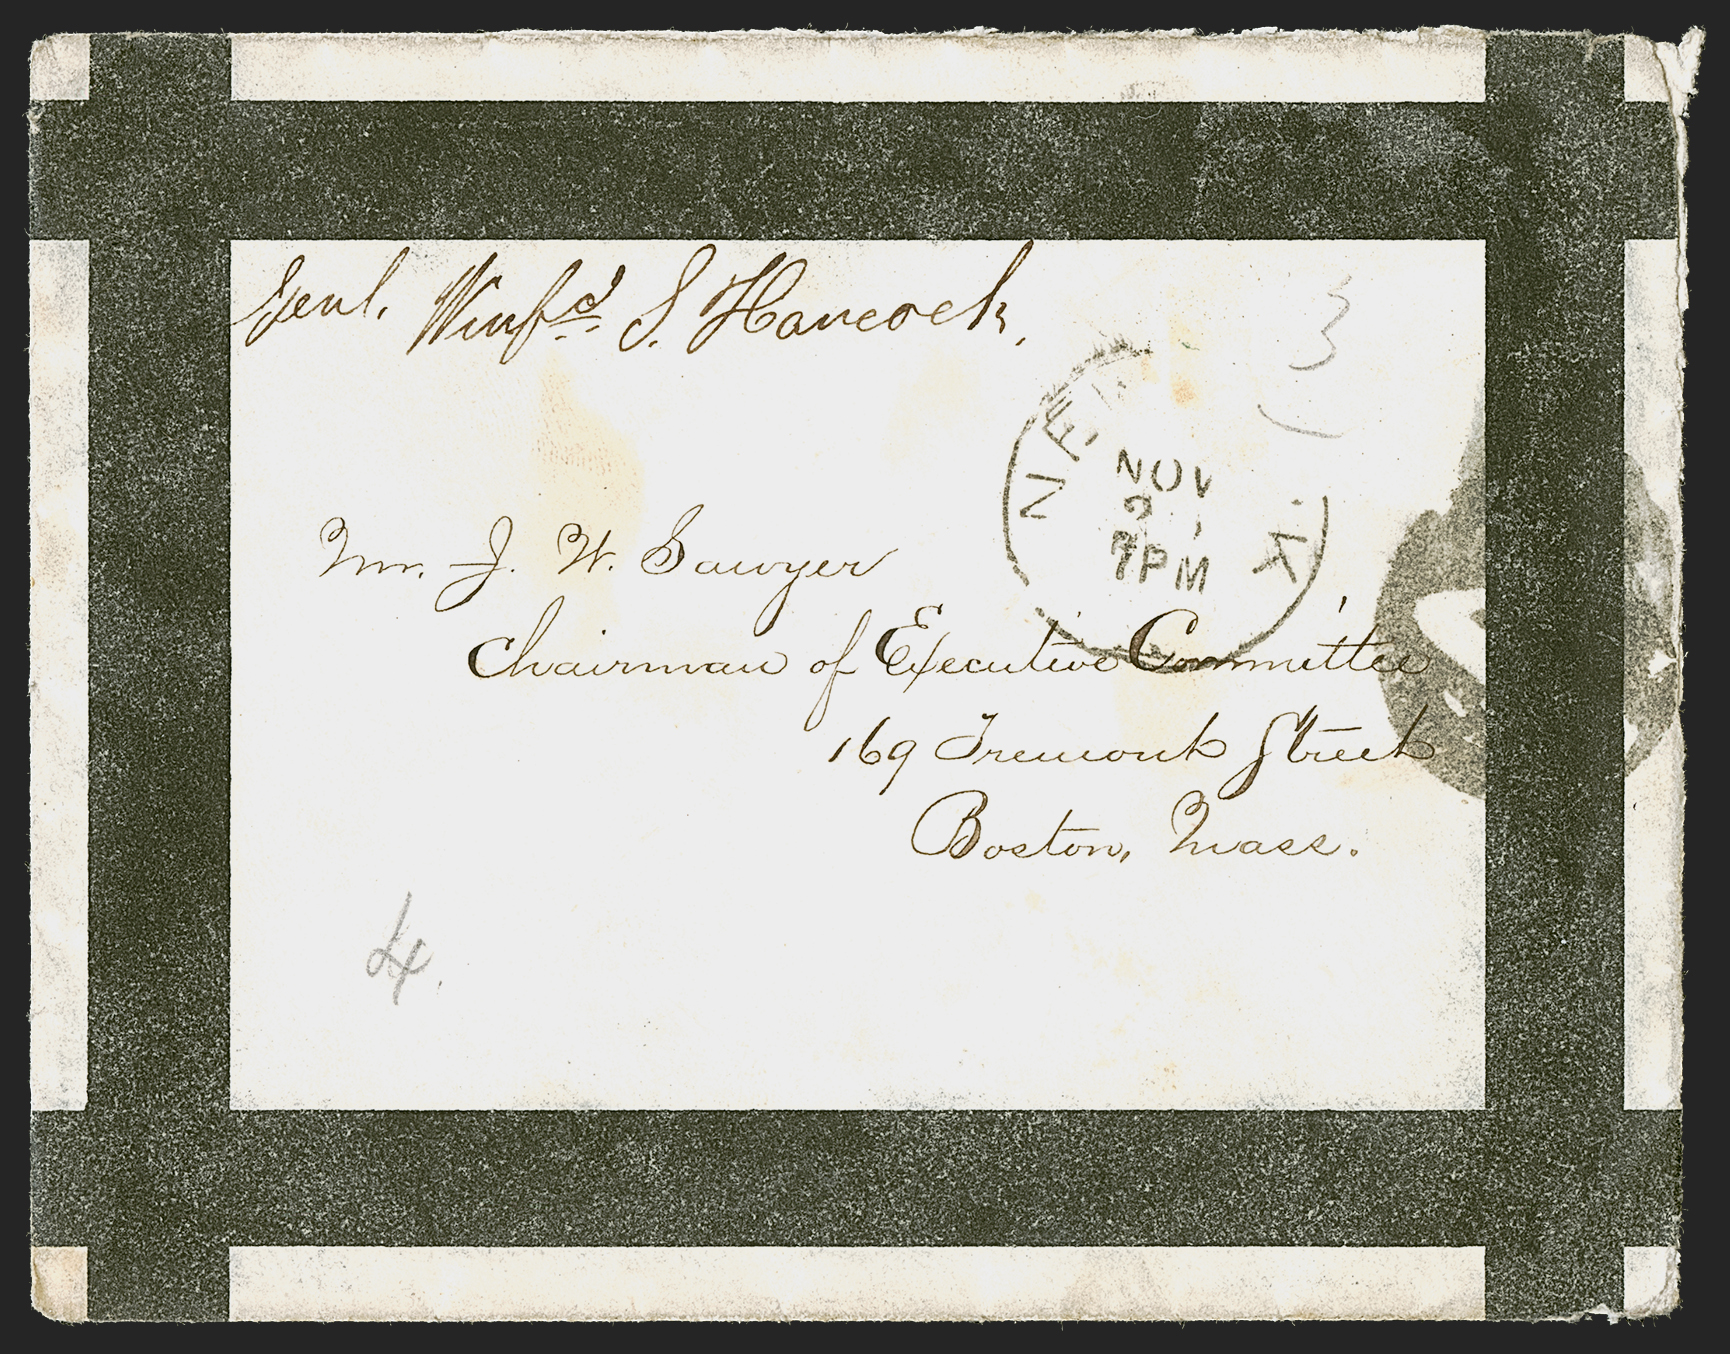 Genl. Winfd. S. Hancock.
3
NEW
NOV
2
7PM
Mr. J. W. Sawyer
Chairman of Executive Committee
169 Tremont Street
Boston, Mass.
4